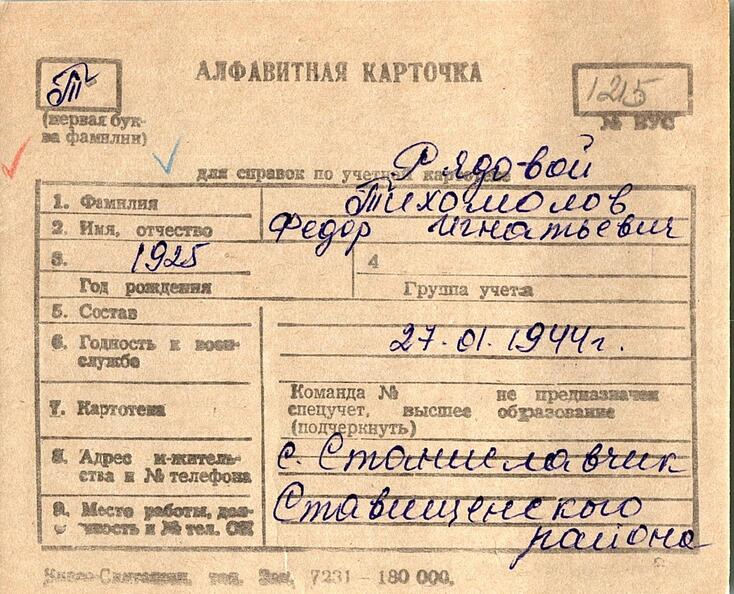 АЛФАВИТНАЯ КАРТОЧКА
Т
1215
(первая бук-
ва фамилии)
№ ВУС
для справок по учетной картотеке
Рядовой
1. Фамилия Тихомолов
2. Имя, отчество Федор Игнатьевич
3. 1925
4
Год рождения
Группа учета
5. Состав
6. Годность к воен-
службе
27.01.1944г.
7. Картотека
Команда № не предназначен
спецучет, высшее образование
(подчеркнуть)
8. Адрес м-житель-
ства и № телефона
с. Станиславчик
9. Место работы, дол-
жность и № тел. ОК
Ставищенского
района
Зак. 7231 — 180 000.